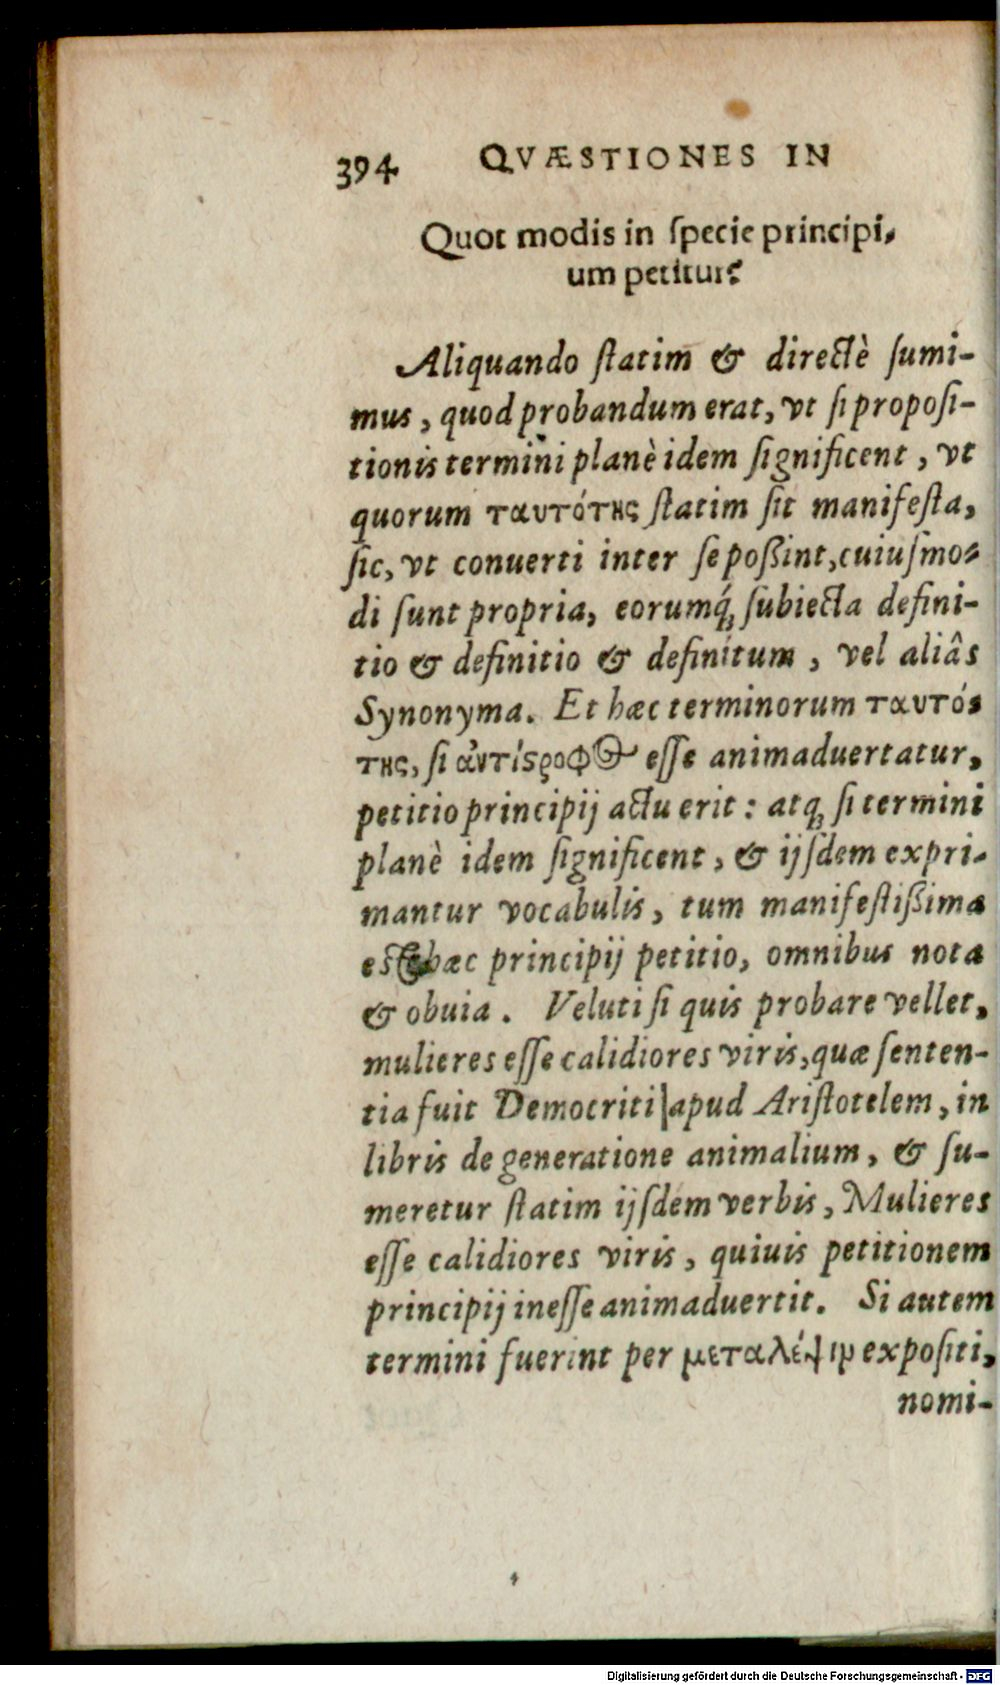 394 QVÆSTIONES IN
Quot modis in ſpecie principi,
um petitur?
Aliquando ſtatim & directè ſumi-
mus, quod probandum erat, vt ſi propoſi-
tionis termini planè idem ſignificent, vt
quorum ταυτότης ſtatim ſit manifeſta,
ſic, vt conuerti inter ſe poßint, cuiuſmo-
di ſunt propria, eorumq́; ſubiecta defini-
tio & definitio & definitum, vel aliâs
Synonyma. Et hæc terminorum ταυτό-
της, ſi ἀντίςροφος eſſe animaduertatur,
petitio principij actu erit: atq; ſi termini
planè idem ſignificent, & ijſdem expri-
mantur vocabulis, tum manifeſtißima
eſt hæc principij petitio, omnibus nota
& obuia. Veluti ſi quis probare vellet,
mulieres eſſe calidiores viris, quæ ſenten-
tia fuit Democriti apud Ariſtotelem, in
libris de generatione animalium, & ſu-
meretur ſtatim ijſdem verbis, Mulieres
eſſe calidiores viris, quiuis petitionem
principij ineſſe animaduertit. Si autem
termini fuerint per μεταλέψιν expoſiti,
nomi-
Digitalisierung gefördert durch die Deutsche Forschungsgemeinschaft - DFG